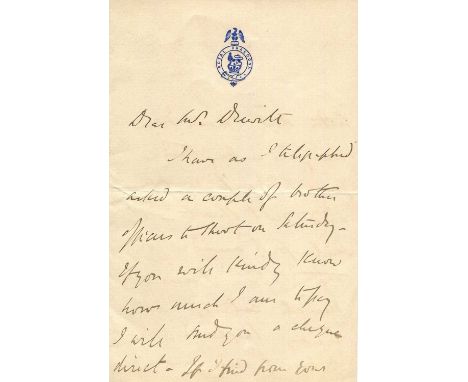 ROYAL DRAGOONS
Dear Mr. Drewitt
I have as I telegraphed
asked a couple of brother
officers to shoot on Saturday –
If you will kindly know
how much I am to pay
I will send you a cheque
direct – If I find from your